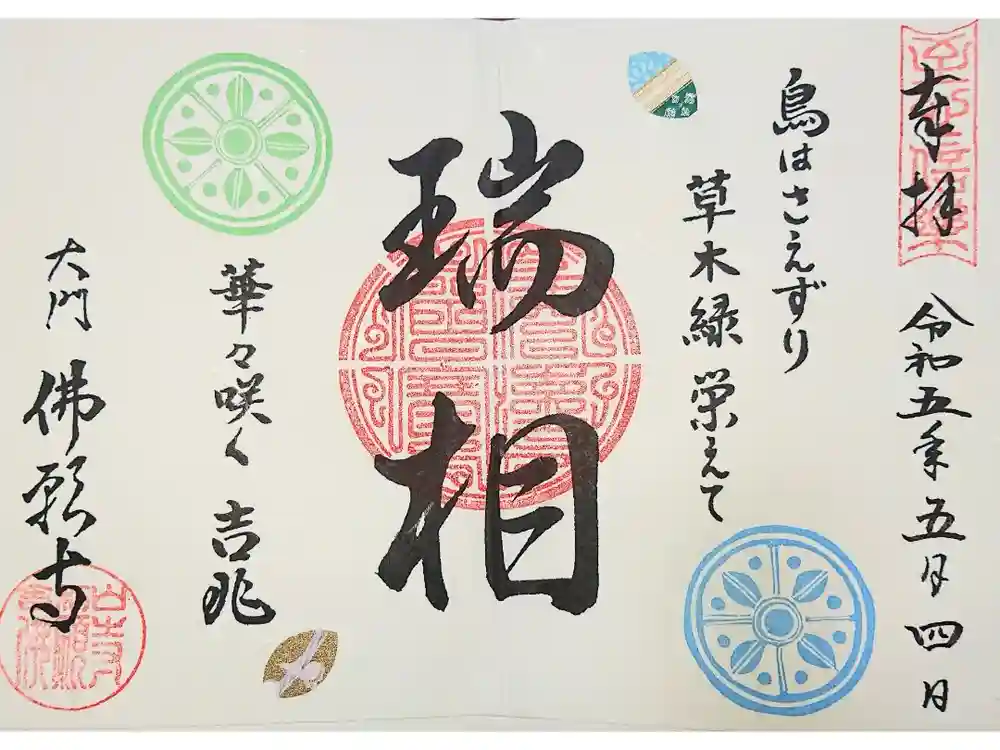 奉拝
令和五年五月四日
鳥はさえずり
草木緑栄えて
瑞相
華々咲く 吉兆
大門 佛願寺